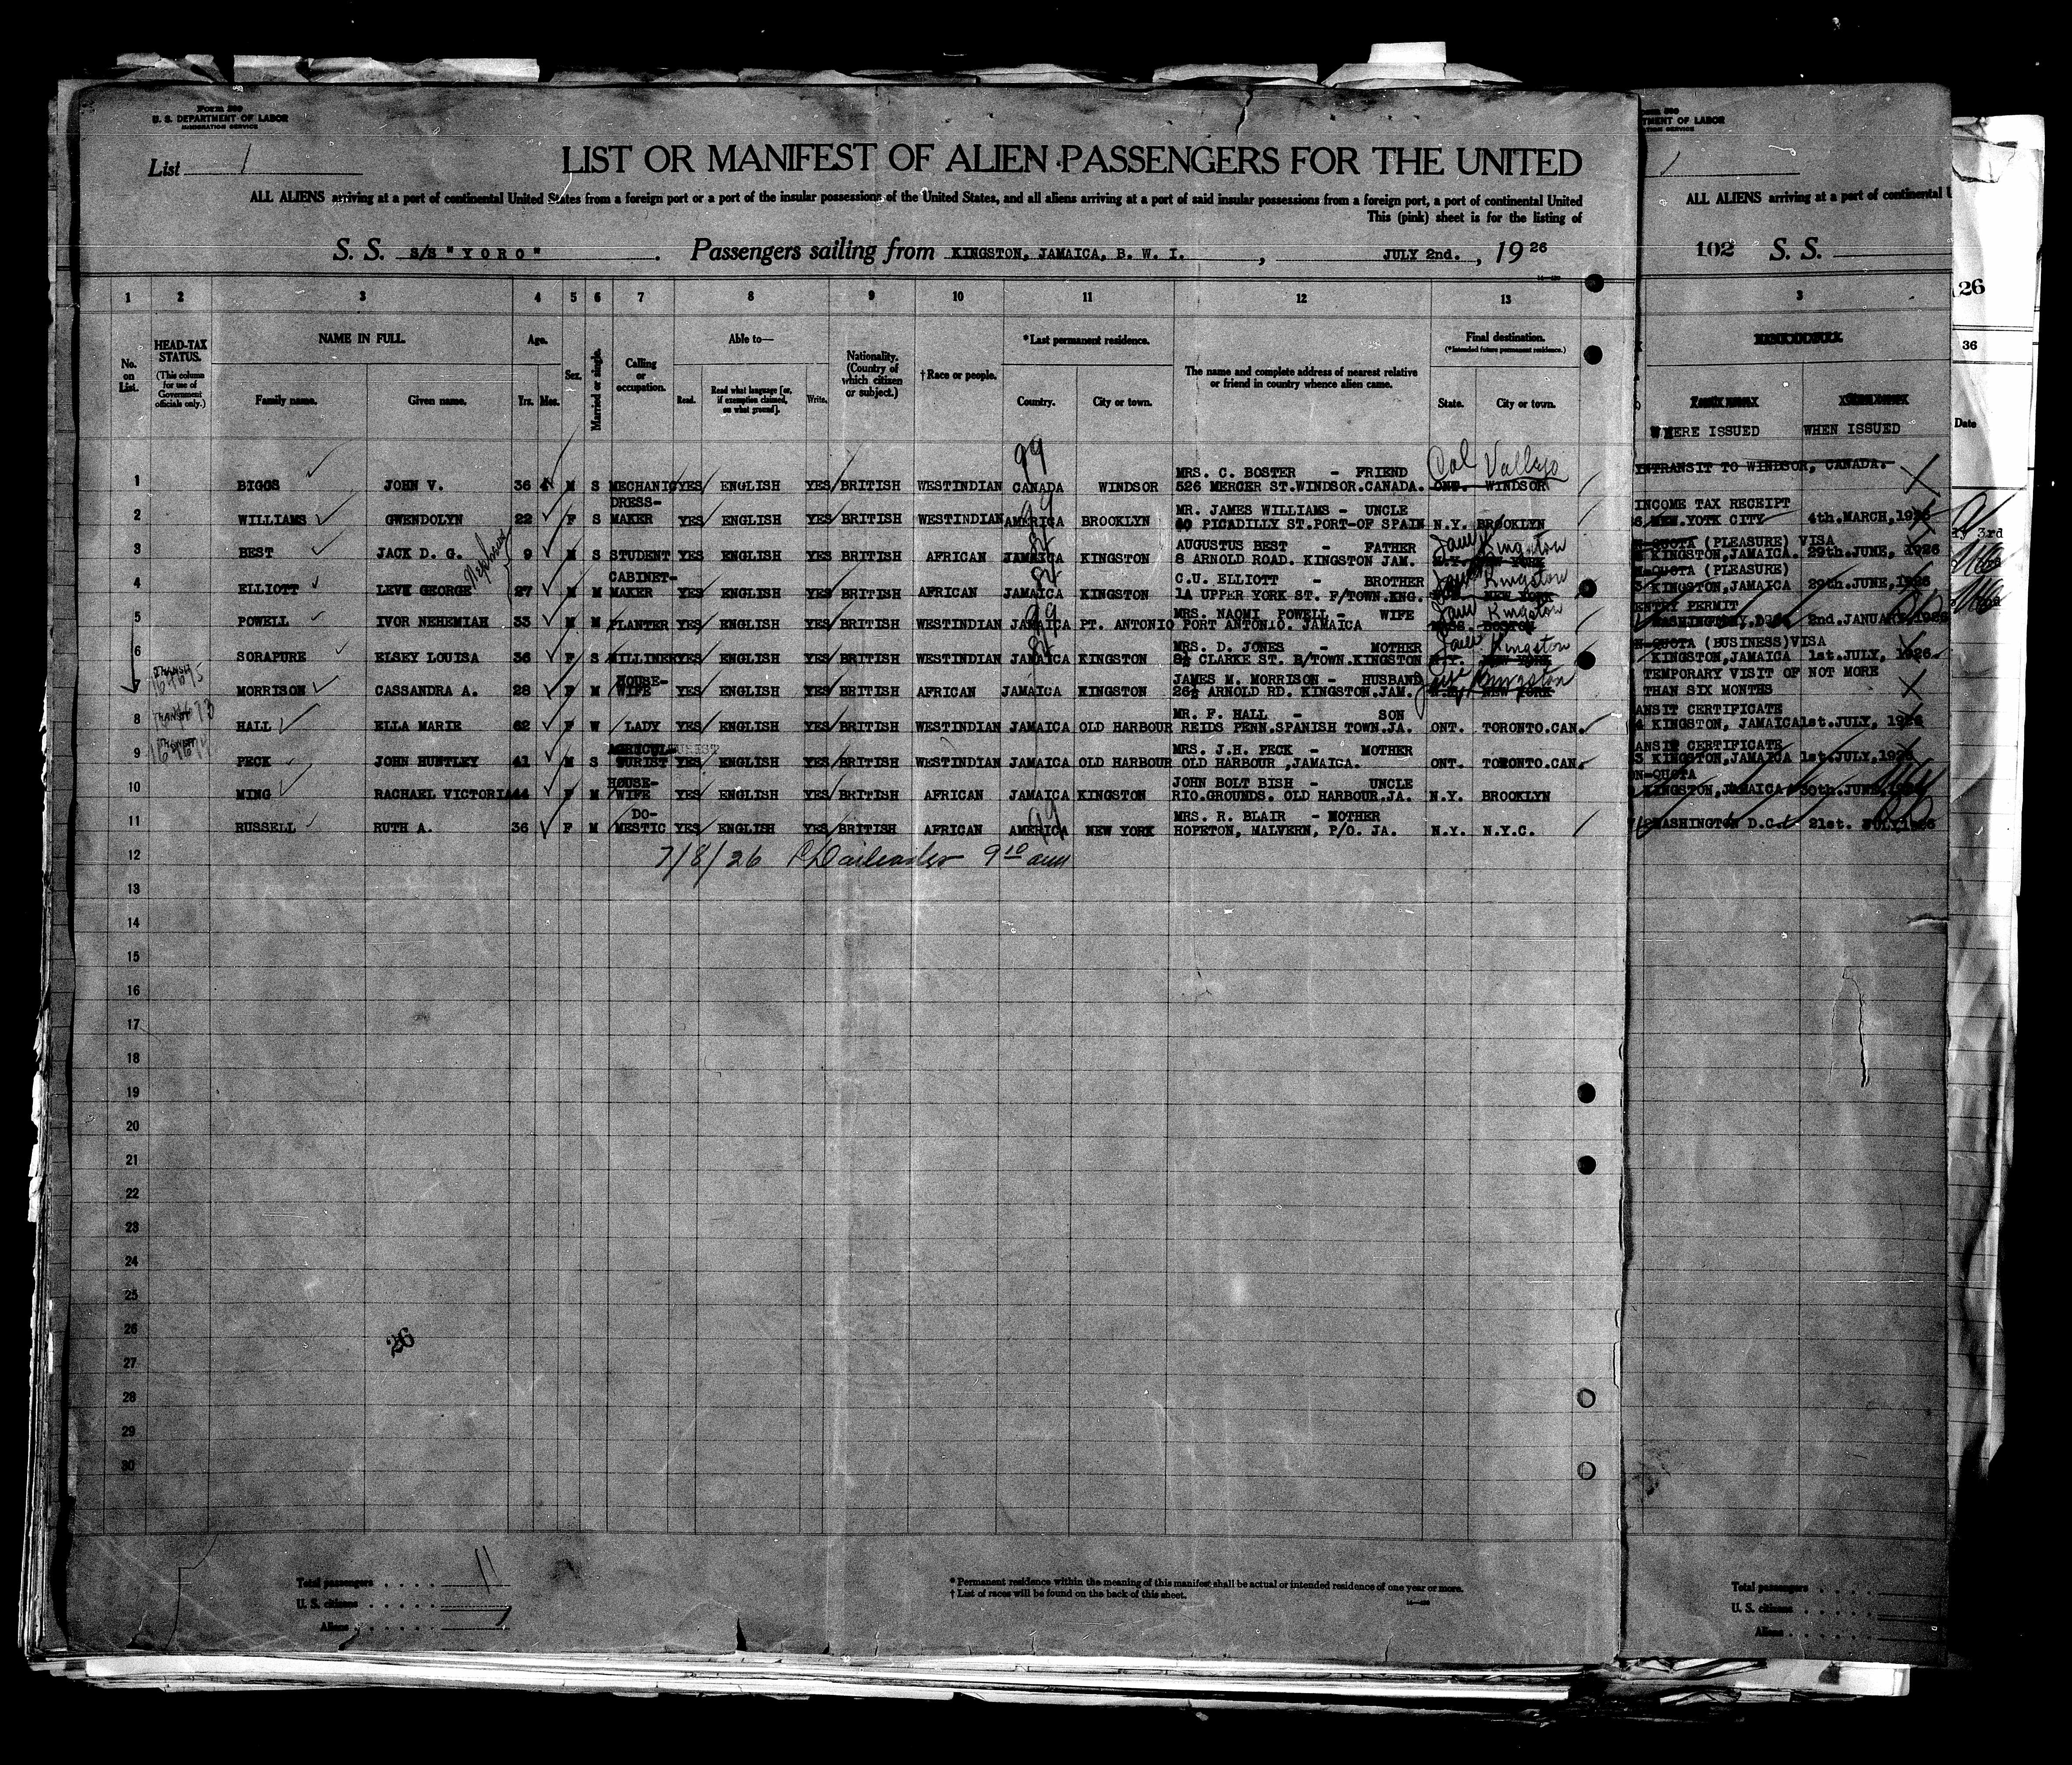 Form 500
U. S. DEPARTMENT OF LABOR
IMMIGRATION SERVICE
List 1
LIST OR MANIFEST OF ALIEN PASSENGERS FOR THE UNITED
ALL ALIENS arriving at a port of continental United States from a foreign port or a port of the insular possessions of the United States, and all aliens arriving at a port of said insular possessions from a foreign port, a port of continental United
This (pink) sheet is for the listing of
S. S. S/S "YORO" . Passengers sailing from KINGSTON, JAMAICA, B. W. I. , JULY 2nd. , 1926
1 2 3 4 5 6 7 8 9 10 11 12 13
No. on List.
HEAD-TAX STATUS.
(This column for use of Government officials only.)
NAME IN FULL.
Family name. Given name.
Age.
Yrs. Mos.
Sex.
Married or single.
Calling or occupation.
Able to—
Read. Read what language [or, if exemption claimed, on what ground]. Write.
Nationality. (Country of which citizen or subject.)
†Race or people.
*Last permanent residence.
Country. City or town.
The name and complete address of nearest relative or friend in country whence alien came.
Final destination.
(*Intended future permanent residence.)
State. City or town.
99 Cal Vallejo
MRS. C. BOSTER - FRIEND
1 BIGGS JOHN V. 36 M S MECHANIC YES ENGLISH YES BRITISH WESTINDIAN CANADA WINDSOR 526 MERCER ST.WINDSOR.CANADA. ONT. WINDSOR
DRESS- 99 MR. JAMES WILLIAMS - UNCLE
2 WILLIAMS GWENDOLYN 22 F S MAKER YES ENGLISH YES BRITISH WESTINDIAN AMERICA BROOKLYN 40 PICADILLY ST.PORT-OF SPAIN N.Y. BROOKLYN
84 AUGUSTUS BEST - FATHER Jam Kingston
3 BEST JACK D. G. 9 M S STUDENT YES ENGLISH YES BRITISH AFRICAN JAMAICA KINGSTON 8 ARNOLD ROAD. KINGSTON JAM. N.Y. NEW YORK
Nephew
CABINET- 84 C.U. ELLIOTT - BROTHER Jam Kingston
4 ELLIOTT LEVI GEORGE 27 M M MAKER YES ENGLISH YES BRITISH AFRICAN JAMAICA KINGSTON 1A UPPER YORK ST. F/TOWN.KNG. N.Y. NEW YORK
99 MRS. NAOMI POWELL - WIFE Jam Kingston
5 POWELL IVOR NEHEMIAH 33 M M PLANTER YES ENGLISH YES BRITISH WESTINDIAN JAMAICA PT. ANTONIO PORT ANTONIO. JAMAICA MASS. BOSTON
84 MRS. D. JONES - MOTHER Jam Kingston
6 SORAPURE ELSEY LOUISA 36 F S MILLINER YES ENGLISH YES BRITISH WESTINDIAN JAMAICA KINGSTON 8½ CLARKE ST. B/TOWN.KINGSTON N.Y. NEW YORK
HOUSE- JAMES M. MORRISON - HUSBAND Kingston
MORRISON CASSANDRA A. 28 F M WIFE YES ENGLISH YES BRITISH AFRICAN JAMAICA KINGSTON 26½ ARNOLD RD. KINGSTON.JAM. N.Y. NEW YORK
TRANSIT
MR. F. HALL - SON
8 HALL ELLA MARIE 62 F W LADY YES ENGLISH YES BRITISH WESTINDIAN JAMAICA OLD HARBOUR REIDS PENN.SPANISH TOWN.JA. ONT. TORONTO.CAN.
TRANSIT
AGRICUL- MRS. J.H. PECK - MOTHER
9 PECK JOHN HUNTLEY 41 M S TURIST YES ENGLISH YES BRITISH WESTINDIAN JAMAICA OLD HARBOUR OLD HARBOUR ,JAMAICA. ONT. TORONTO.CAN.
TRANSIT
HOUSE- JOHN BOLT BISH - UNCLE
10 MING RACHAEL VICTORIA 44 F M WIFE YES ENGLISH YES BRITISH AFRICAN JAMAICA KINGSTON RIO.GROUNDS. OLD HARBOUR.JA. N.Y. BROOKLYN
DO- 99 MRS. R. BLAIR - MOTHER
11 RUSSELL RUTH A. 36 F M MESTIC YES ENGLISH YES BRITISH AFRICAN AMERICA NEW YORK HOPETON, MALVERN, P/O. JA. N.Y. N.Y.C.
12 7/8/26 9 10 am
13
14
15
16
17
18
19
20
21
22
23
24
25
26
27
28
29
30
26
Total passengers . . . . 11
U. S. citizens . . . . .
Aliens . . . . . .
* Permanent residence within the meaning of this manifest shall be actual or intended residence of one year or more.
† List of races will be found on the back of this sheet.
TMENT OF LABOR
ALL ALIENS arriving at a port of continental U
102 S. S.
3
WHERE ISSUED WHEN ISSUED
INTRANSIT TO WINDSOR, CANADA.
INCOME TAX RECEIPT
NEW.YOTK CITY 4th.MARCH,1926
QUOTA (PLEASURE) VISA
KINGSTON,JAMAICA. 29th.JUNE, 1926
QUOTA (PLEASURE)
KINGSTON,JAMAICA 29th.JUNE,1926
ENTRY PERMIT
WASHINGTON, D.C. 2nd.JANUARY,1926
QUOTA (BUSINESS)VISA
KINGSTON,JAMAICA 1st.JULY, 1926.
TEMPORARY VISIT OF NOT MORE
THAN SIX MONTHS
ANSIT CERTIFICATE
KINGSTON, JAMAICA 1st.JULY, 1926
ANSIT CERTIFICATE
KINGSTON,JAMAICA 1st.JULY,1926
N-QUOTA
KINGSTON,JAMAICA 30th.JUNE,1926
WASHINGTON D.C. 21st. JULY,1926
Total passengers . . .
U. S. citizens . . . .
Aliens . . . . . .
26
36
Date
3rd